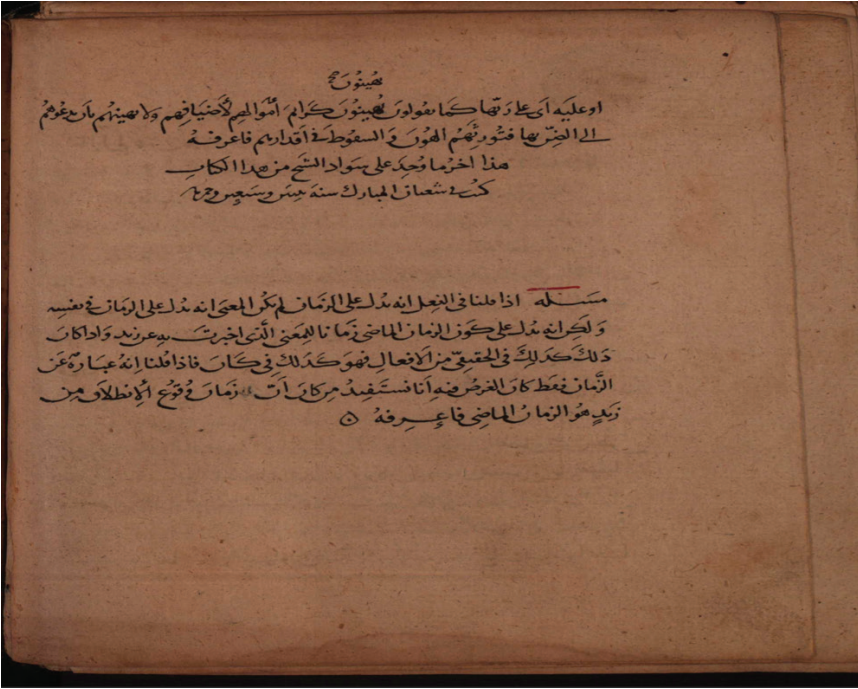 يهينون صح
او عليه اى على ربها كما يقولون يهينون كرايم أموالهم لأضيافهم ولا يهينهم بأن يدعوهم
الى الضن بها فتورثهم الهون والسقوط في أقدارهم فاعرفه
هذا اخر ما وجد على سواد الشيخ من هذا الكتاب
شعبان المبارك سنة وسبعين
مسئله اذا قلنا فى الفعل انه يدل على الزمان لم يكن المعنى انه يدل على الزمان في نفسه
ولكن انه يدل على كون الزمان الماضى زمانا للمعنى الذى اخبرت به عن زيد واذا كان
ذلك كذلك فى الحقيقى من الافعال فهو كذلك في كان فاذا قلنا انه عبارة عن
الزمان فقط كان الغرض فيه أنا نستفيد من كان أن زمان وقوع الانطلاق من
زيد هو الزمان الماضى فاعرفه